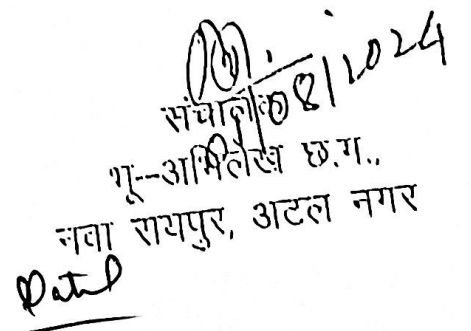 /08/2024
संचालक
भू--अभिलेख छ.ग.,
नवा रायपुर, अटल नगर